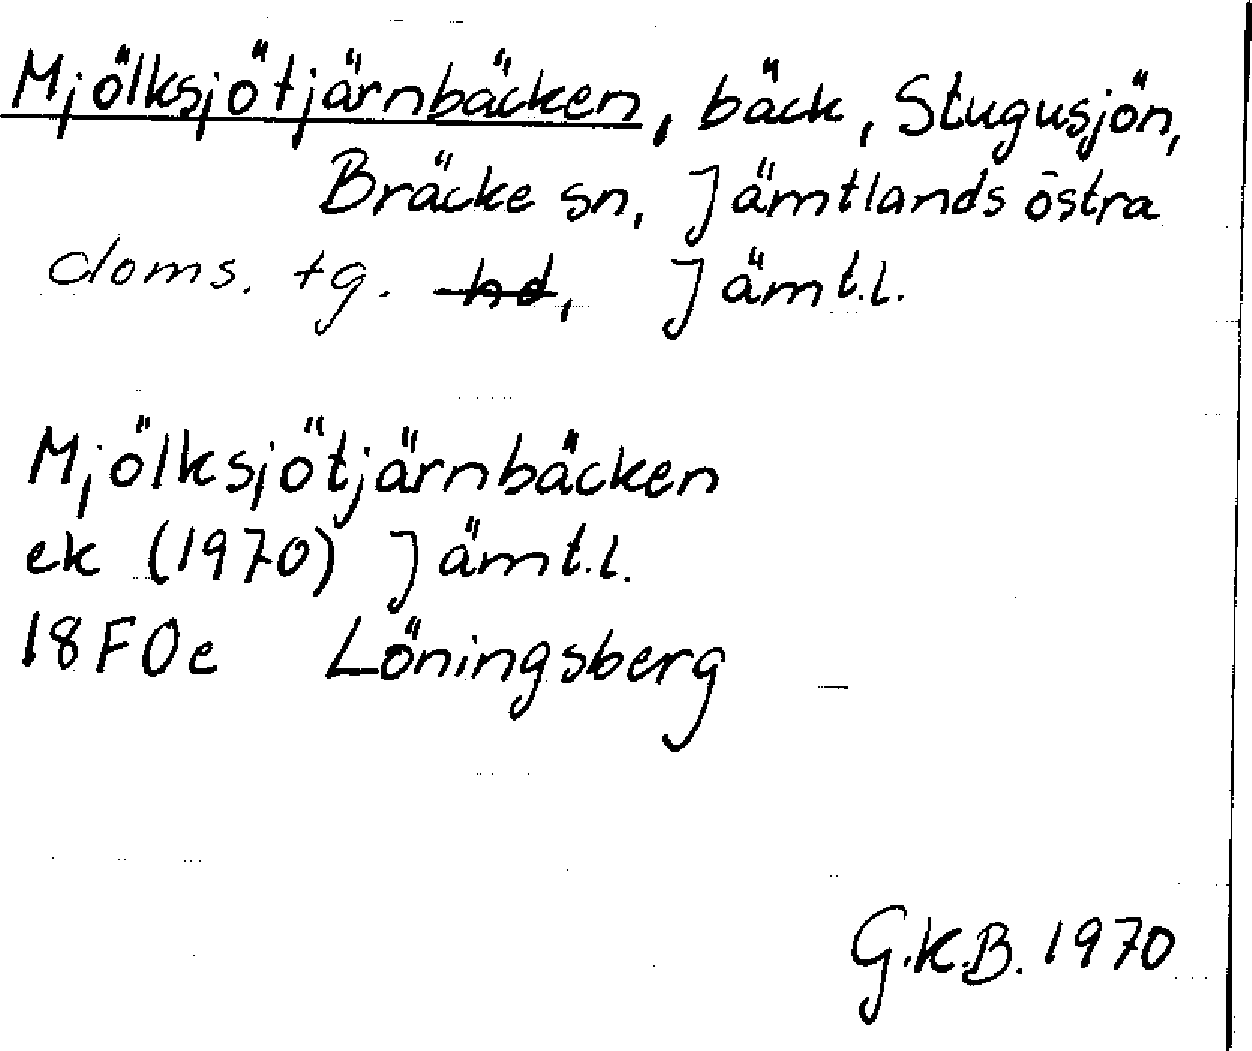 Mjölksjötjärnbäcken, bäck, Stugusjön,
Bräcke sn, Jämtlands östra
doms. tg. hd, Jämt.l.
Mjölksjötjärnbäcken
ek (1970) Jämt.l.
18F0e Löningsberg
G.K.B. 1970